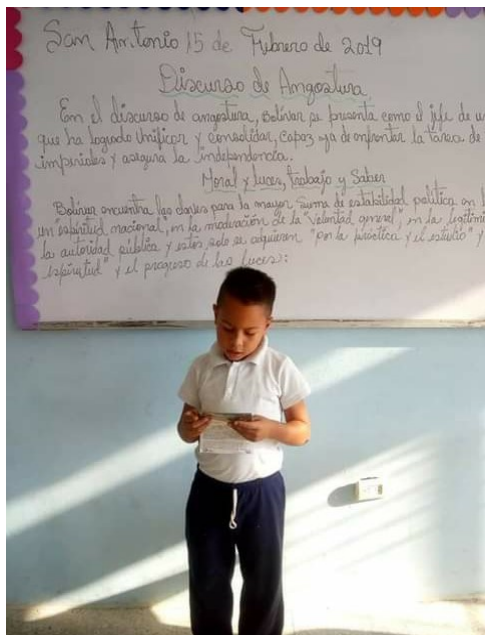 San Antonio 15 de Febrero de 2019
Discurso de Angostura
En el discurso de angostura, Bolívar se presenta como el jefe de u
que ha logrado Unificar y consolidar, capaz ya de enfrentar la tarea de
imperiales y asegura la independencia.
Moral y luces, trabajo y Saber
Bolívar encuentra las claves para la mayor suma de estabilidad política en l
un "espíritud nacional", en la moderación de la "voluntad general", en la legitimi
la autoridad pública y estos solo se adquieren "por la práctica y el estudio" y
espíritud" y el progreso de las luces: